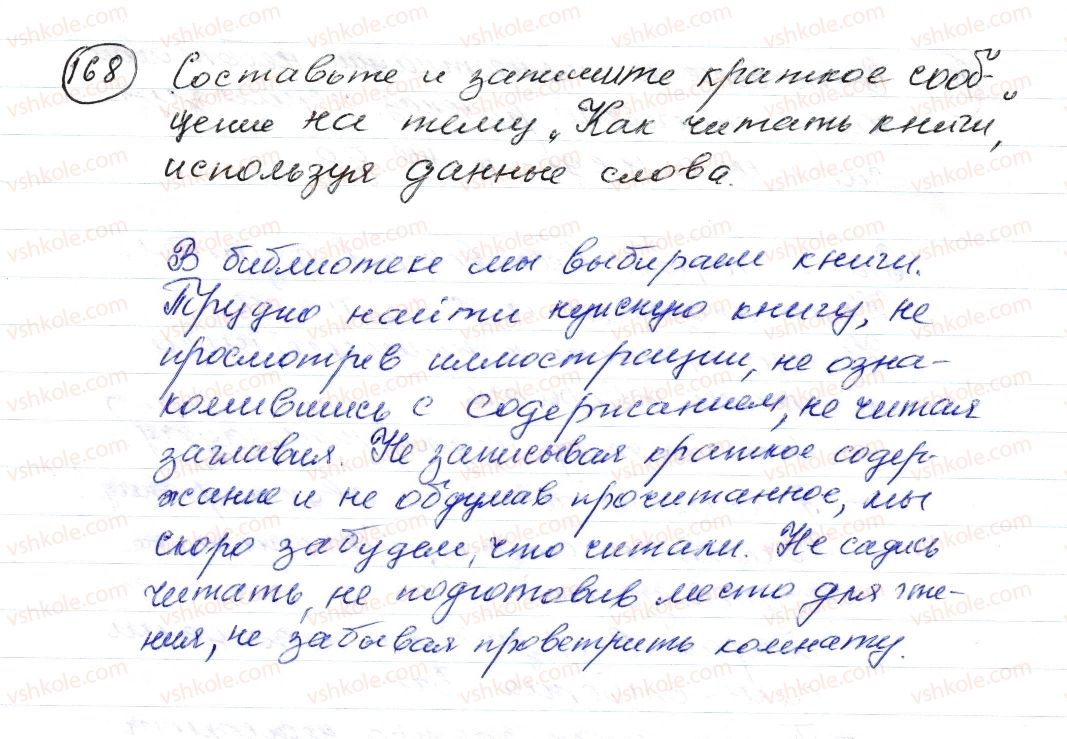 168 Составьте и запишите краткое сооб-
щение на тему „Как читать книги",
используя данные слова.
В библиотеке мы выбираем книги.
Трудно найти нужную книгу, не
просмотрев иллюстрации, не озна-
комившись с содержанием, не читая
заглавия. Не записывая краткое содер-
жание и не обдумав прочитанное, мы
скоро забудем, что читали. Не садись
читать, не подготовив место для чте-
ния, не забывая проветрить комнату.